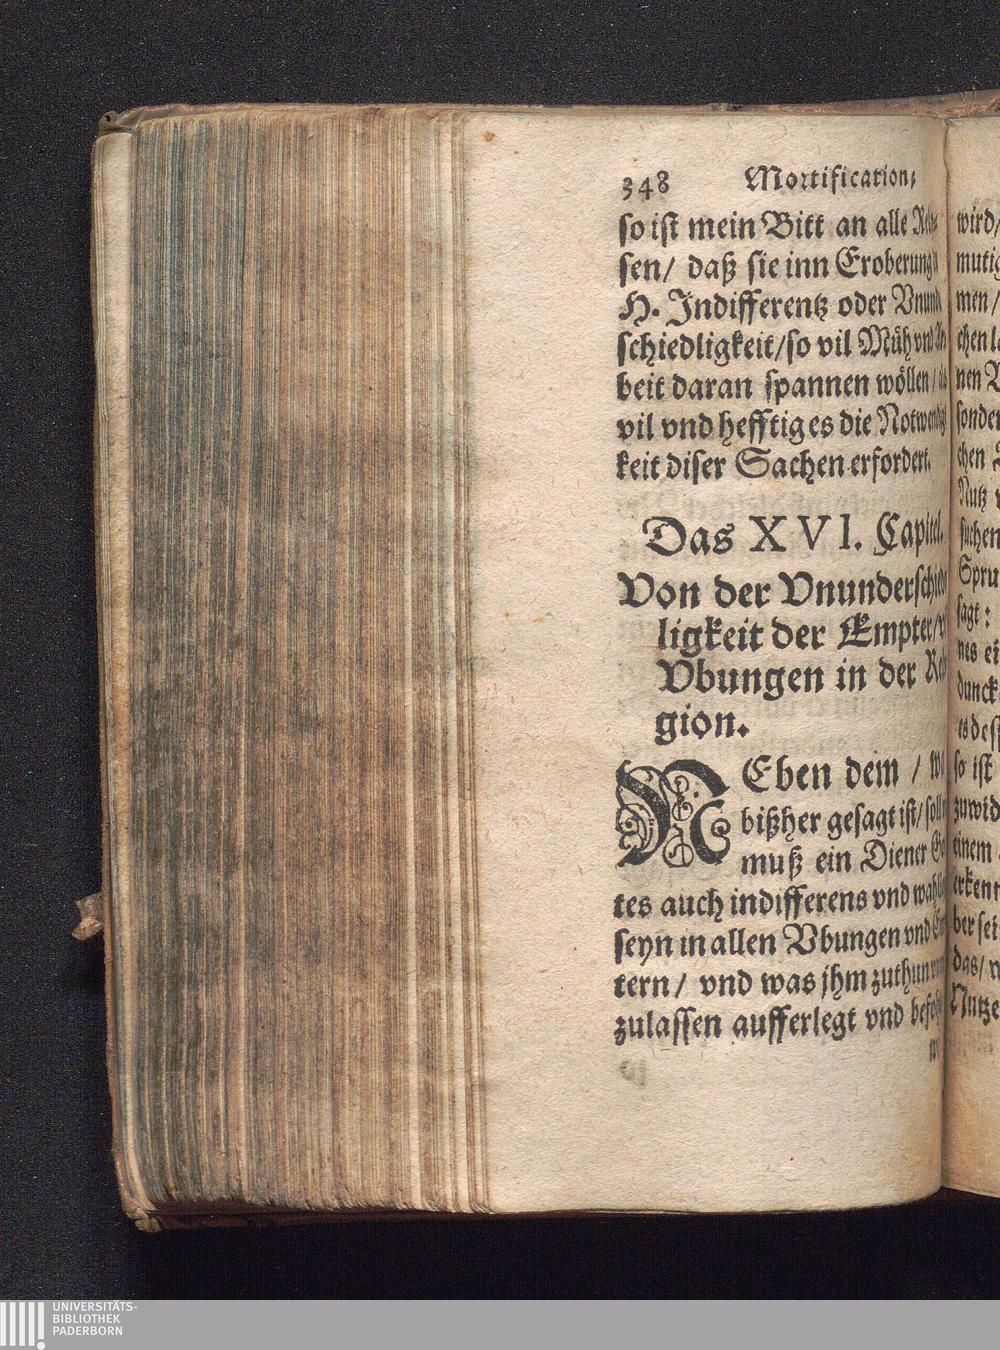 348 Mortification,
so ist mein Bitt an alle
sen/ daß sie inn Eroberung
H. Indifferentz oder Vnund
schiedligkeit/so vil Müh vnd
beit daran spannen wöllen/
vil vnd hefftig es die Notwendig
keit diser Sachen erfordert.
Das XVI. Capitel.
Von der Vnunderschied
ligkeit der Empter/
Vbungen in der Reli
gion.
NEben dem /
bißher gesagt ist/
muß ein Diener
tes auch indifferens vnd
seyn in allen Vbungen vnd
tern/ vnd was jhm zuthun
zulassen aufferlegt vnd
wird/
mutig
men/
chen
nen
sonder
chen
Nutz
suchen
Spru
sagt:
nes
dunck
so ist
zuwid
einem
erkent
ber sei
das/
Nutze
UNIVERSITÄTS-
BIBLIOTHEK
PADERBORN